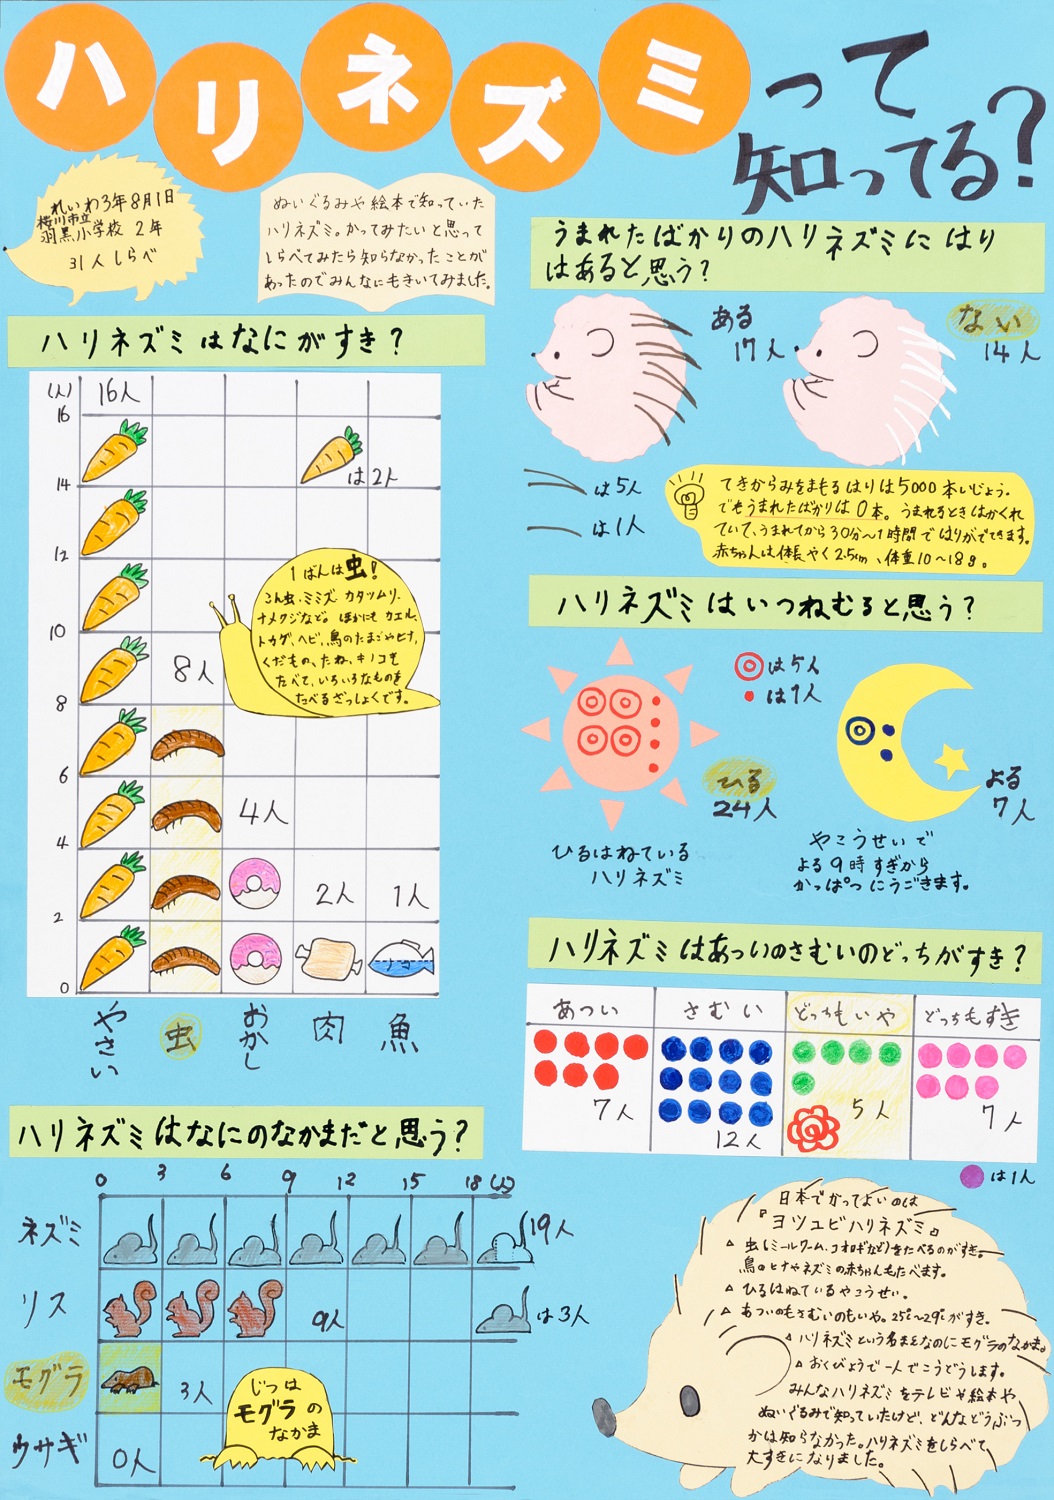 ハリネズミって
知ってる?
れいわ3年8月1日
桜川市立
羽黒小学校 2年
31人しらべ
ぬいぐるみや絵本で知っていた
ハリネズミ。かってみたいと思って
しらべてみたら知らなかったことが
あったのでみんなにもきいてみました。
ハリネズミはなにがすき?
(人)
16人
16
14
12
10
8
6
4
2
0
は2人
8人
4人
2人
1人
1ばんは虫!
こん虫、ミミズ、カタツムリ、
ナメクジなど。ほかにもカエル、
トカゲ、ヘビ、鳥のたまごやヒナ、
くだもの、たね、キノコを
たべて、いろいろなものを
たべるざっしょくです。
やさい
虫
おかし
肉
魚
ハリネズミはなにのなかまだと思う?
0 3 6 9 12 15 18 (人)
ネズミ
19人
リス
9人
は3人
モグラ
3人
ウサギ
0人
じつは
モグラの
なかま
うまれたばかりのハリネズミにはり
はあると思う?
ある
17人
ない
14人
は5人
は1人
てきからみをまもるはりは5000本いじょう。
でもうまれたばかりは0本。うまれるときはかくれ
ていて、うまれてから30分~1時間ではりがでてきます。
赤ちゃんは体長やく2.5cm、体重10~18g。
ハリネズミはいつねむると思う?
は5人
は1人
ひる
24人
ひるはねている
ハリネズミ
よる
7人
やこうせいで
よる9時すぎから
かっぱつにうごきます。
ハリネズミはあついのさむいのどっちがすき?
あつい
さむい
どっちもいや
どっちもすき
7人
12人
5人
7人
は1人
日本でかってよいのは
『ヨツユビハリネズミ』
△ 虫(ミールワーム、コオロギなど)をたべるのがすき。
鳥のヒナやネズミの赤ちゃんもたべます。
△ ひるはねているやこうせい。
△ あついのもさむいのもいや。25℃~29℃がすき。
△ ハリネズミという名まえなのにモグラのなかま。
△ おくびょうで一人でこうどうします。
みんなハリネズミをテレビや絵本や
ぬいぐるみで知っていたけど、どんなどうぶつ
かは知らなかった。ハリネズミをしらべて、
大すきになりました。